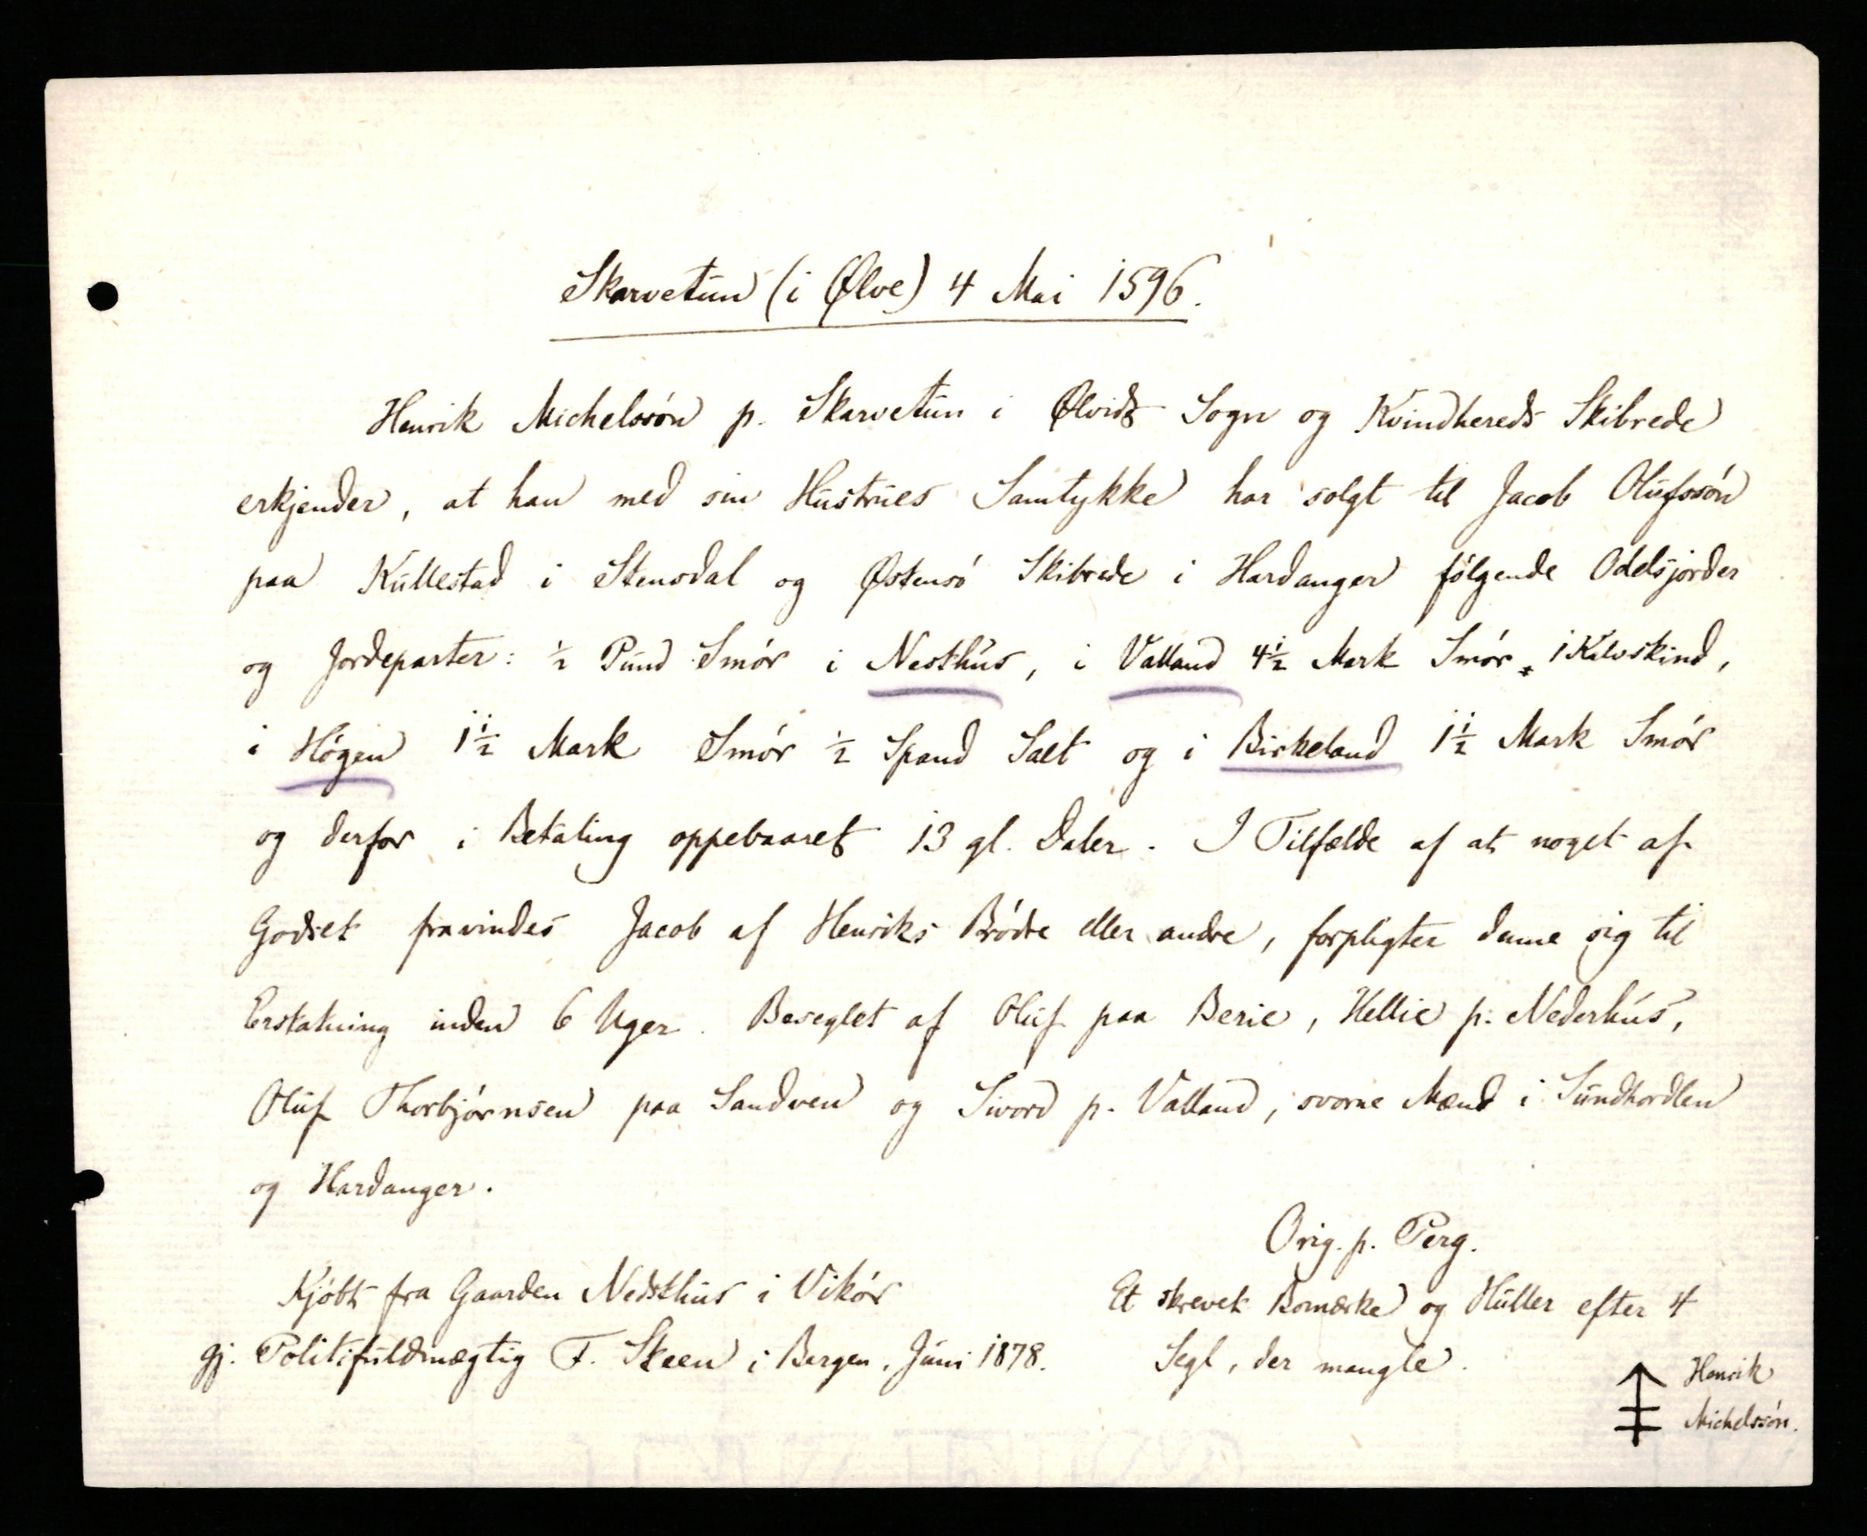 Skarvetun (i Ølve) 4 Mai 1596.
Henrik Michelssön p. Skarvetun i Ølvids Sogn og Kvindhereds Skibrede
erkjender, at han med sin Hustrues Samtykke har solgt til Jacob Olufssön
paa Kullestad i Stensdal og Østensö Skibrede i Hardanger følgende Odelsjorder
og Jordeparter: ½ Pund Smör i Nesthus, i Valland 4½ Mark Smör, 1 Kalvskind,
i Högen 1½ Mark Smör ½ Spand Salt og i Birkeland 1½ Mark Smör
og derfor i Betaling oppebaaret 13 gl. Daler. I Tilfælde af at noget af
Godset fravindes Jacob af Henriks Brödre eller andre, forpligter denne sig til
Erstatning inden 6 Uger. Beseglet af Oluf paa Berie, Hellie p. Nederhus,
Oluf Thorbjörnsen paa Sandven og Sivord p. Valland, svorne Mænd i Sundhordlen
og Hardanger.
Orig. p. Perg.
Kjöbt fra Gaarden Nedsthus i Vikör
gj. Politifuldmægtig F. Skeen i Bergen, Juni 1878.
Et skrevet Bomærke og Huller efter 4
Segl, der mangle.
Henrik
Michelssön.